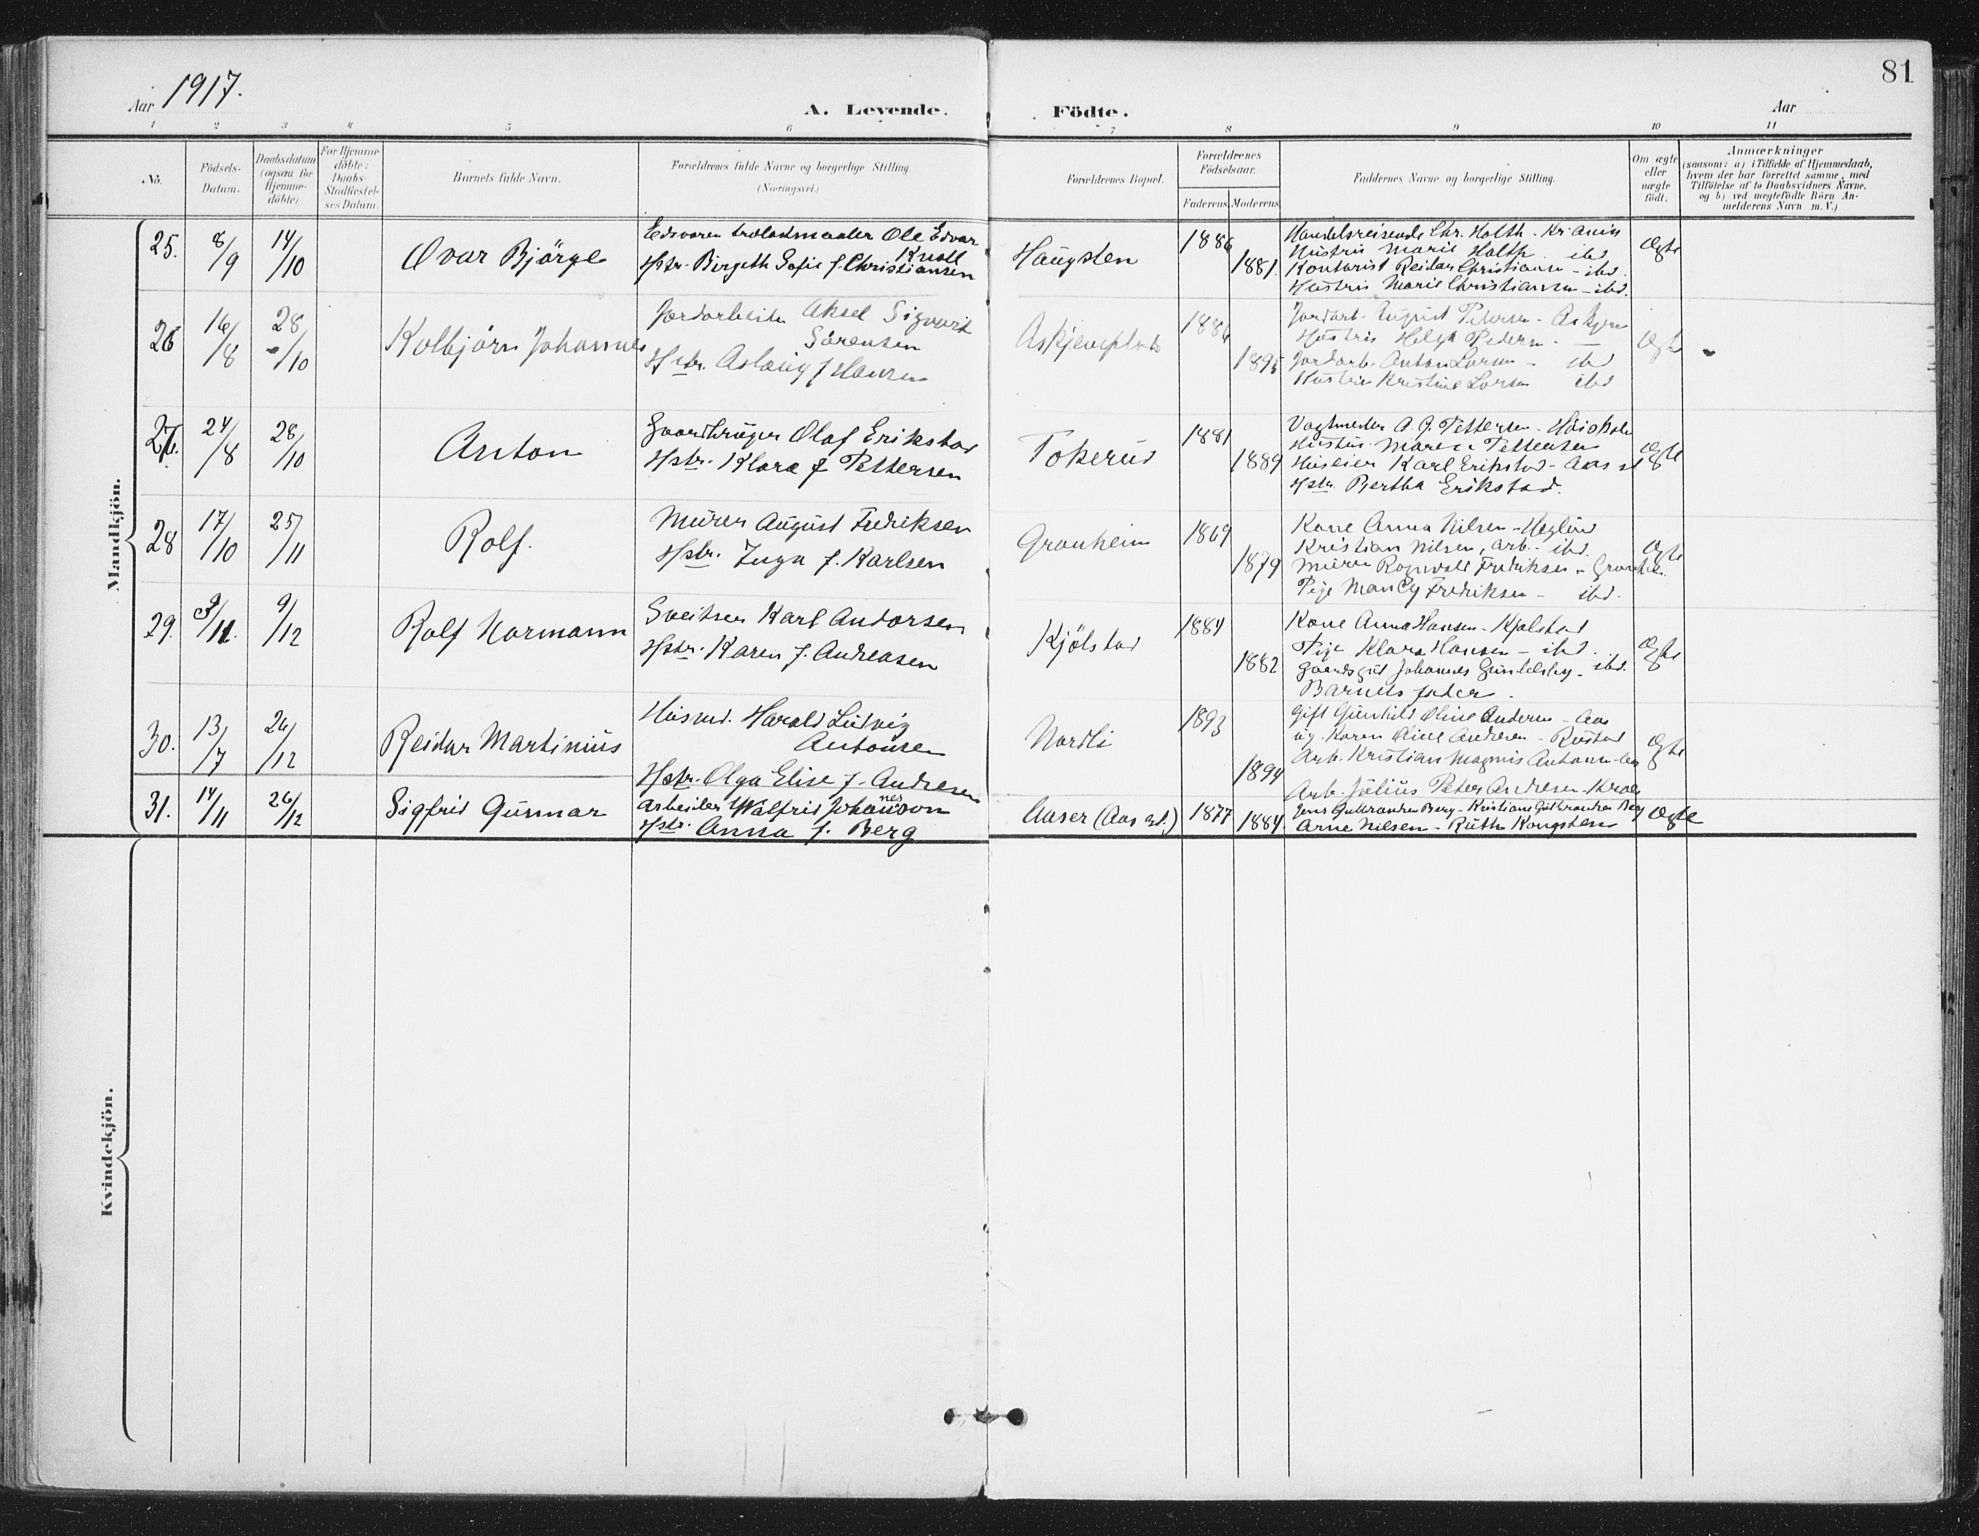 81
Aar 1917.
A. Levende.
Födte.
Aar
1 2 3 4 5 6 7 8 9 10 11
No.
Födsels-
Datum.
Daabsdatum
(ogsaa for
Hjemme-
döbte)
For Hjemme
döbte:
Daabs-
Stadfæstel-
ses Datum.
Barnets fulde Navn.
Forældrenes fulde Navne og borgerlige Stilling
(Næringsvei.)
Forældrenes Bopæl.
Forældrenes
Födselsaar.
Faderens
Moderens
Faddernes Navne og borgerlige Stilling.
Om ægte
eller
uægte
födt.
Anmærkninger
(saasom: a) i Tilfælde af Hjemmedaab,
hvem der har forrettet samme, med
Tilföielse af to Daabsvidners Navne.
og b) ved uægtefödte Börn An-
melderens Navn m. V.)
Mandkjön.
25. 8/9 14/10 Øvar Bjørge
Ole Edvar
Knoll
Hstr. Birgeth Sofie f. Christiansen
Haugsten
1886
1881.
Handelsreisende Chr. Holth - Kr.ania
Hustru Marie Holth ibd
Kontorist Reidar Christiansen - ibd.
Hustru Marie Christiansen - ibd.
Ægte
26 16/8 28/10 Kolbjørn Johannes
Jordarbeider Aksel Sigvart
Sørensen
Hstr. Aslaug f Hansen
1886
1895
Jordarb. August Petersen - Askjem
Hustru Helga Petersen —
Jordarb. Anton Larsen - ibd
Hustru Kristine Larsen ibd
Ægte
27. 24/8 28/10 Anton
Gaardbruger Olaf Erikstad
Hstr. Klara f Pettersen
Tokerud
1881
1889
Vagtmester A. G. Pettersen -
Hustru Maren Pettersen
Huseier Karl Erikstad - Aas st
Hstr Bertha Erikstad.
Ægte
28 17/10 25/11 Rolf.
Murer August Fredriksen
Hstr. Inga f. Karlsen
Granheim
1869
1879
Kone Anna Nilsen -
Kristian Nilsen, arb. - ibd.
Murer Ragnvald Fredriksen - Granheim
Pige Nancy Fredriksen - ibd.
Ægte
29. 3/11. 9/12 Rolf Normann
Sveitser Karl Andorsen
Hstr. Karen f. Andreasen
Kjølstad
1884
1882
Kone Anna Hansen - Kjølstad
Pige Klara Hansen - ibd.
Gaardsgut Johannes - ibd.
Barnets fader.
Ægte
30. 13/7 26/12 Reidar Martinius
Husmd. Harald Ludvig
Antonsen
Hstr. Olga Elise f. Andresen
Nordli
1893
1894
Gift Gunhild Oline Andersen - Aas
ug. Karen Oline Andresen - Rustad
Arb. Kristian Magnus Antonsen - Aas
Arb. Julius Peter Andresen -
Ægte
31. 14/11 26/12 Sigfrid Gunnar
Arbeider Walfrid Johanson
Hstr. Anna f. Berg
Aaser (Aas st.)
1877
1884
Jens Gulbrandsen Berg - Kristiane Gulbrandsen Berg
Arne Nilsen - Ruth Kongsten
Ægte
Kvindekjön.